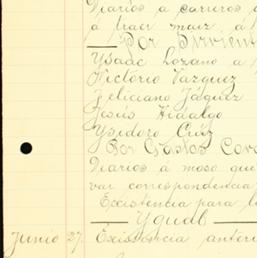 Diarios a carreros d
a traer maiz, a l
Por Sirvient
Ysaac Lozano a
Victorio Vazquez
Feliciano Jáquez
Jesús Hidalgo
Ysidoro Crúz
Por Gastos Cor
Diarios á moso que
var correspondencia
Existentia para l
Ygual
Junio 27. Existencia anteri